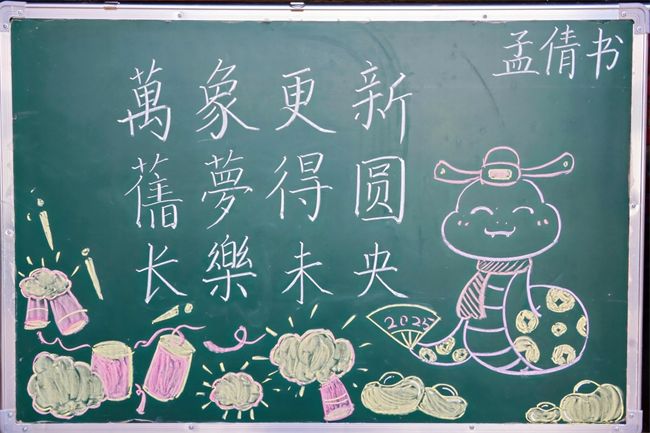 孟倩书
萬象更新
舊夢得圆
长樂未央
2025